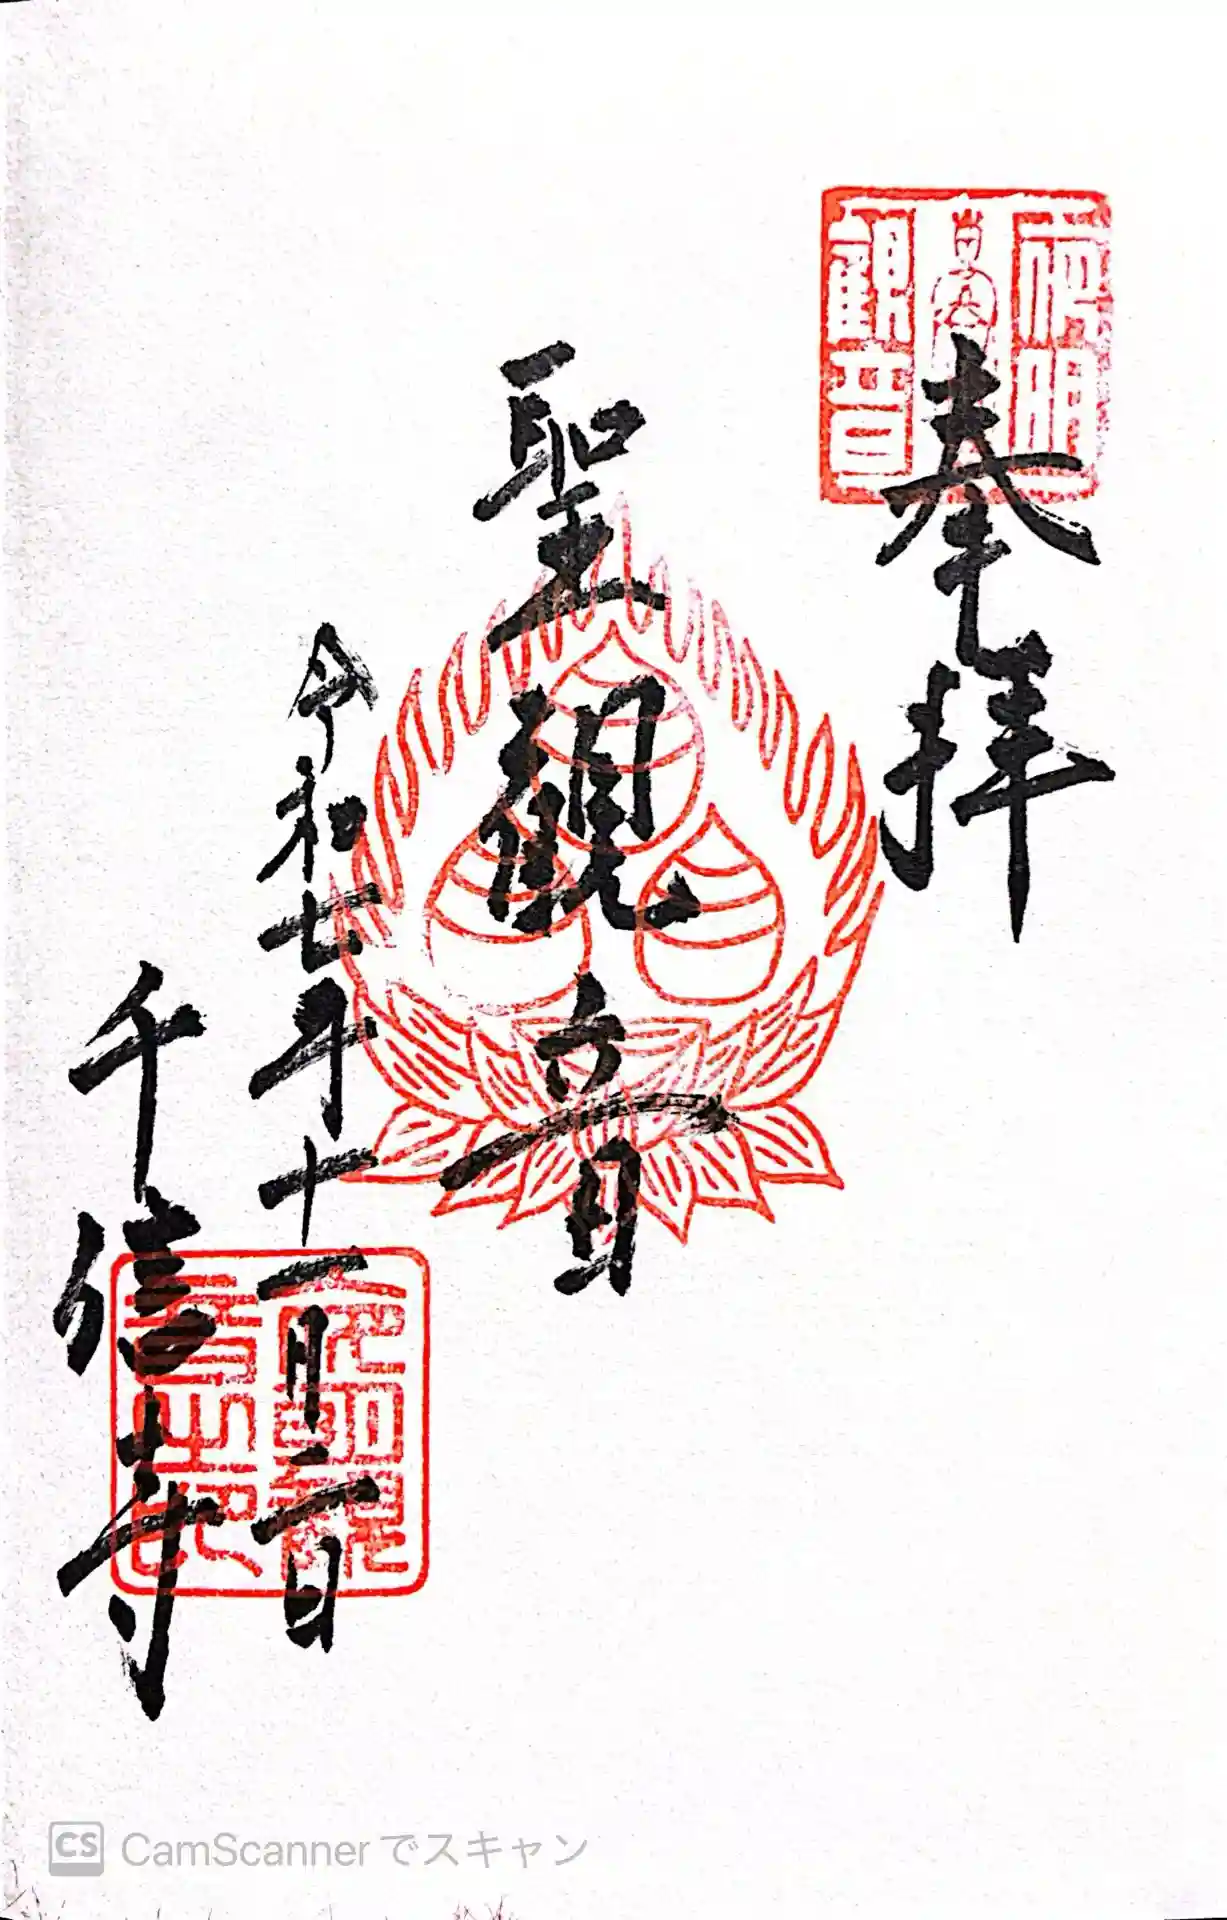 奉拝
聖観音
令和七年十一月二日
千信寺
観音
CS CamScannerでスキャン